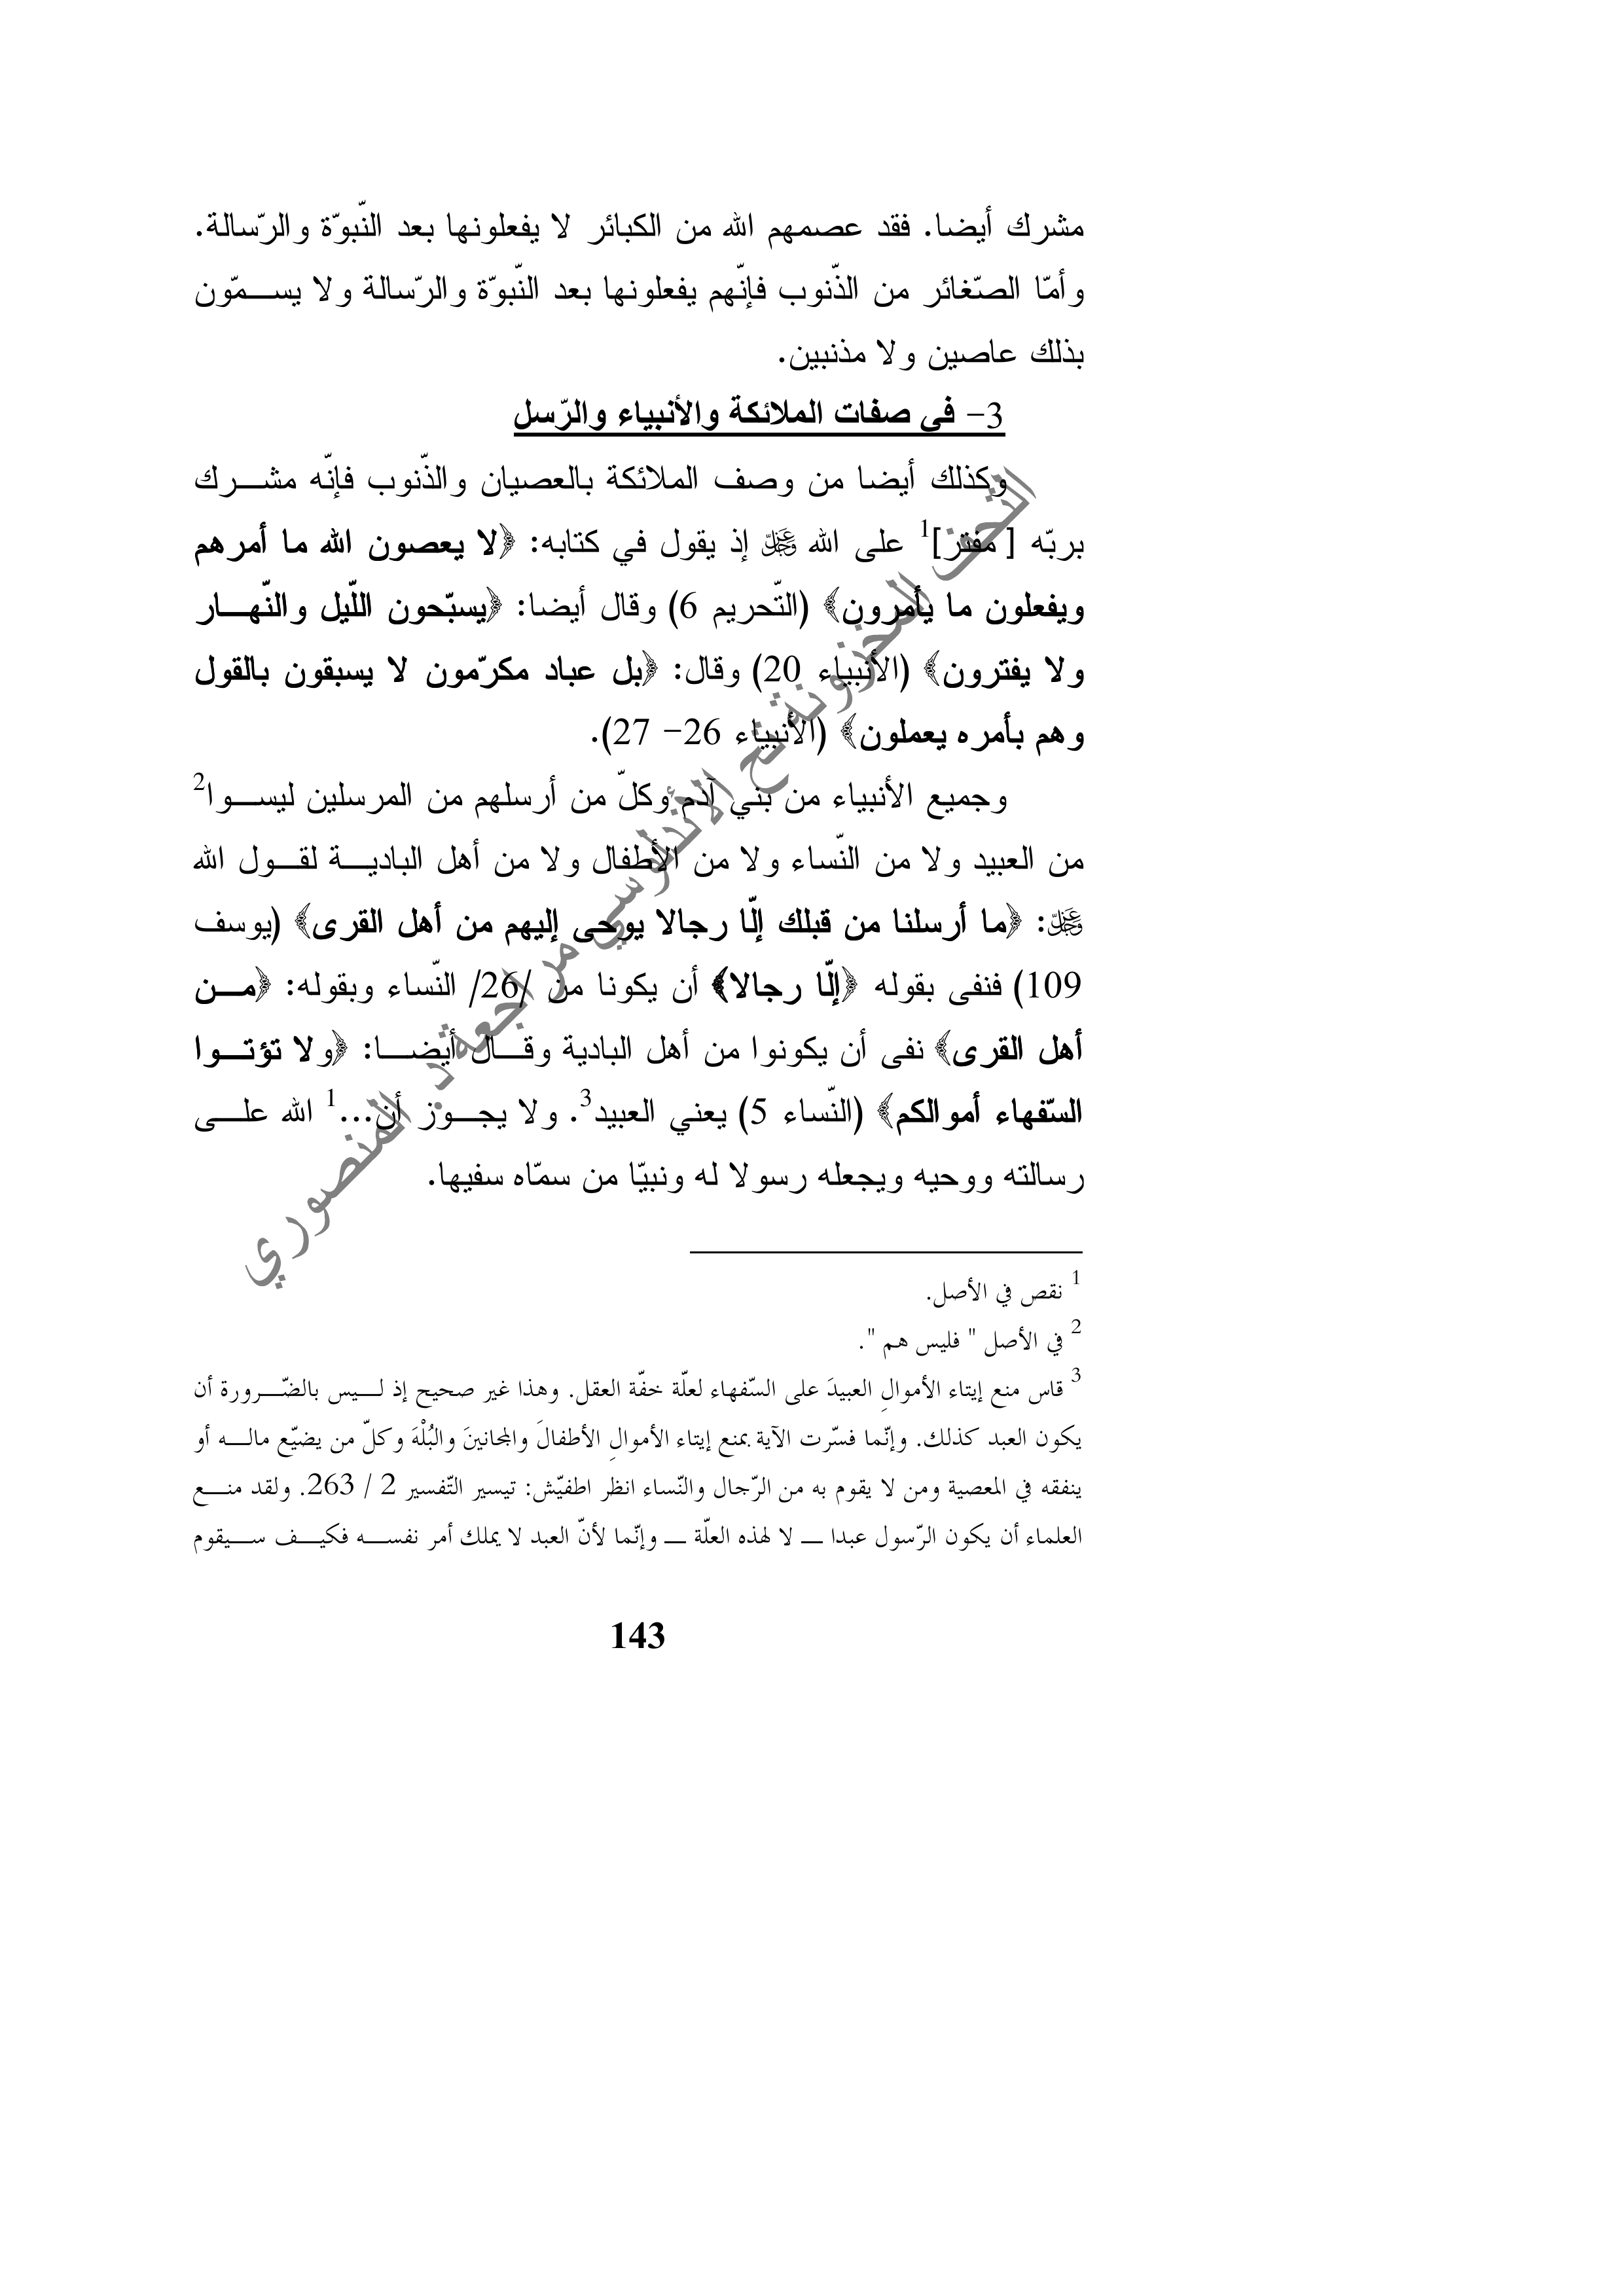 مشرك أيضا. فقد عصمهم الله من الكبائر لا يفعلونها بعد النّبوّة والرّسالة.
وأمّا الصّغائر من الذّنوب فإنّهم يفعلونها بعد النّبوّة والرّسالة ولا يســـمّون
بذلك عاصين ولا مذنبين.
3- في صفات الملائكة والأنبياء والرّسل
وكذلك أيضا من وصف الملائكة بالعصيان والذّنوب فإنّه مشـــرك
بربّه [ مفتر]1 على الله عز وجل إذ يقول في كتابه: ﴿لا يعصون الله ما أمرهم
ويفعلون ما يأمرون﴾ (التّحريم 6) وقال أيضا: ﴿يسبّحون اللّيل والنّهـــار
ولا يفترون﴾ (الأنبياء 20) وقال: ﴿بل عباد مكرّمون لا يسبقون بالقول
وهم بأمره يعملون﴾ (الأنبياء 26- 27).
وجميع الأنبياء من بني آدم وكلّ من أرسلهم من المرسلين ليســـوا2
من العبيد ولا من النّساء ولا من الأطفال ولا من أهل الباديـــة لقـــول الله
عز وجل: ﴿ما أرسلنا من قبلك إلّا رجالا يوحى إليهم من أهل القرى﴾ (يوسف
109) فنفى بقوله ﴿إلّا رجالا﴾ أن يكونا من /26/ النّساء وبقوله: ﴿مـــن
أهل القرى﴾ نفى أن يكونوا من أهل البادية وقـــال أيضـــا: ﴿ولا تؤتـــوا
السّفهاء أموالكم﴾ (النّساء 5) يعني العبيد3. ولا يجـــوز أن...1 الله علـــى
رسالته ووحيه ويجعله رسولا له ونبيّا من سمّاه سفيها.
1 نقص في الأصل.
2 في الأصل " فليس هم ".
3 قاس منع إيتاء الأموالِ العبيدَ على السّفهاء لعلّة خفّة العقل. وهذا غير صحيح إذ لـــيس بالضّـــرورة أن
يكون العبد كذلك. وإنّما فسّرت الآية بمنع إيتاء الأموالِ الأطفالَ والمجانينَ والبُلْهَ وكلّ من يضيّع مالـــه أو
ينفقه في المعصية ومن لا يقوم به من الرّجال والنّساء انظر اطفيّش: تيسير التّفسير 2 / 263. ولقد منـــع
العلماء أن يكون الرّسول عبدا ـــ لا لهذه العلّة ـــ وإنّما لأنّ العبد لا يملك أمر نفســـه فكيـــف ســـيقوم
143
التحف المخزونة تح الأندلوسي مراجعة د. المنصوري